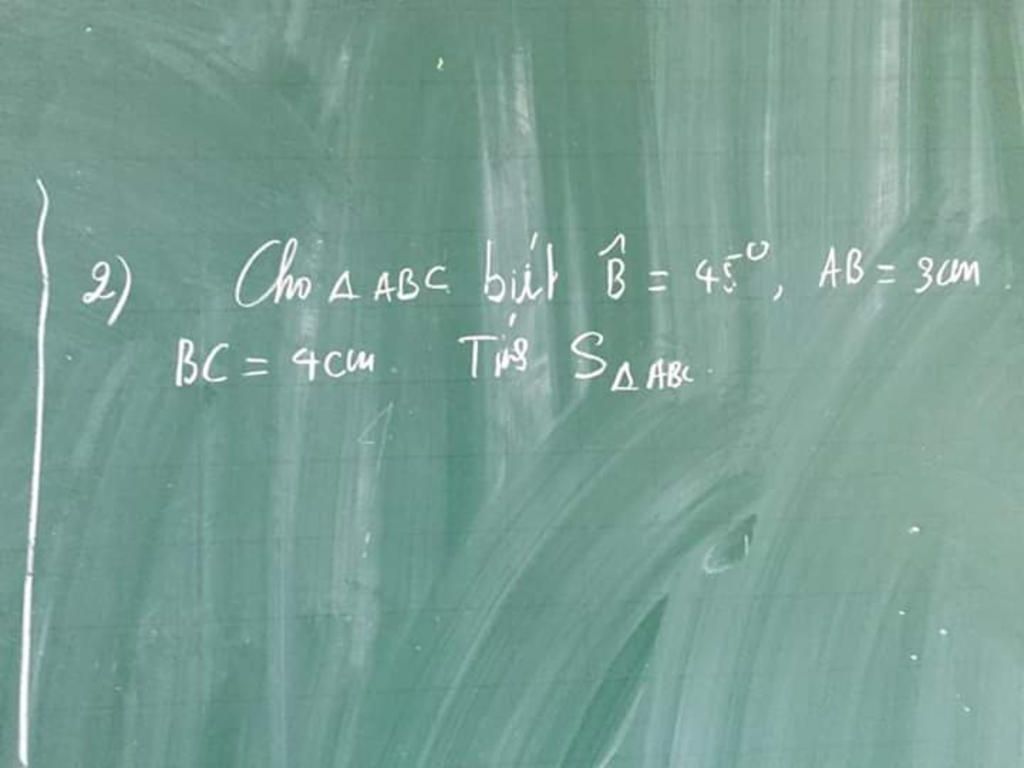 2) Cho △ ABC biết B̂ = 45⁰, AB = 3cm.
BC = 4cm. Tính S△ ABC.